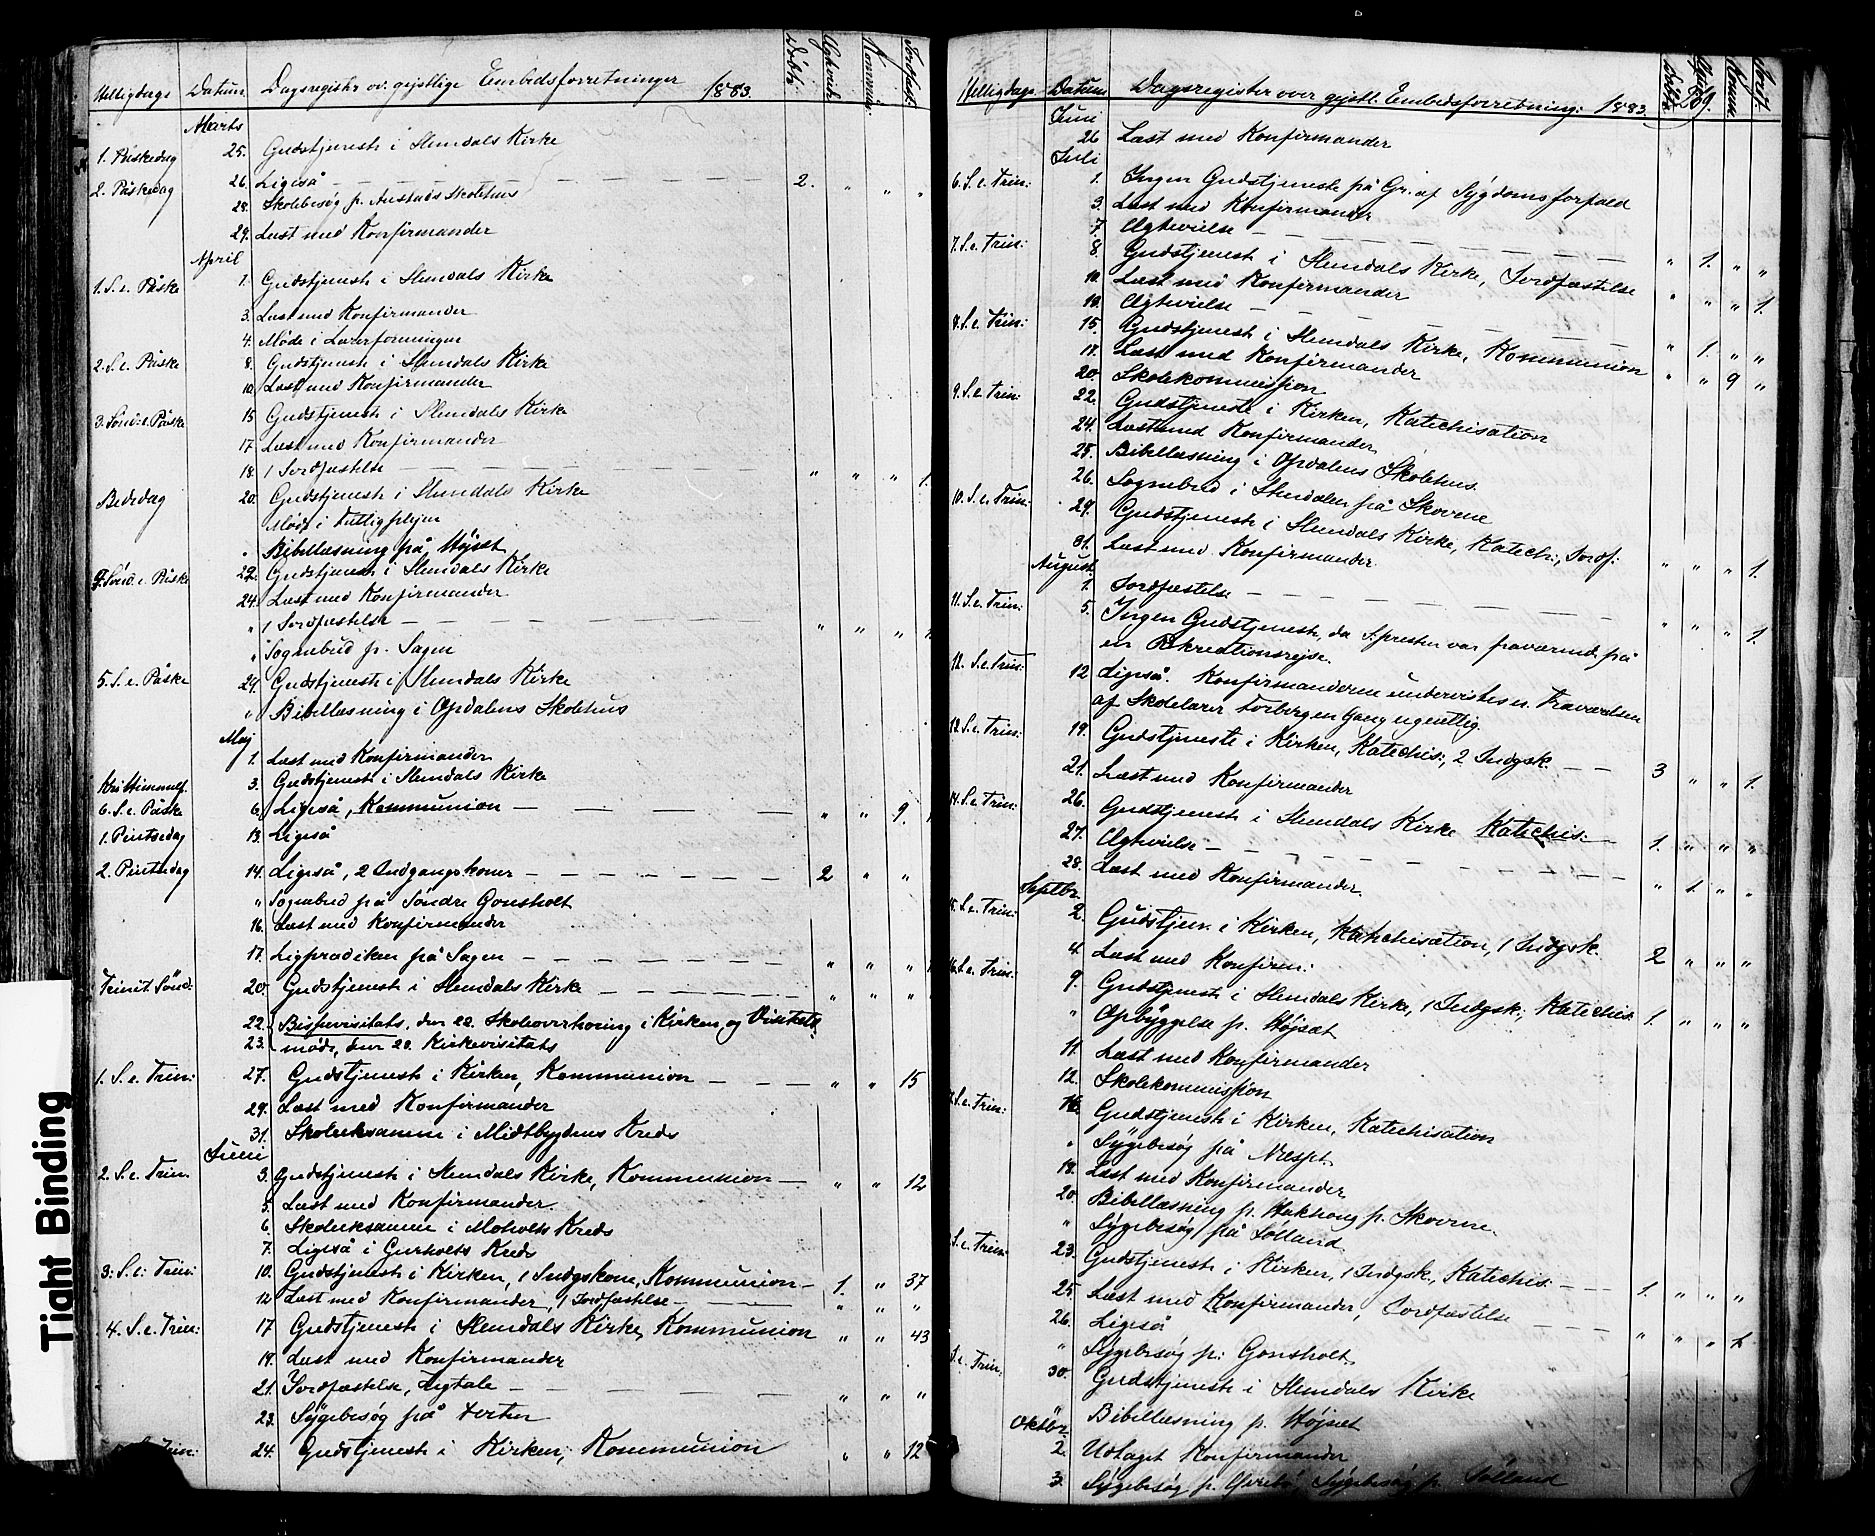 Helligdage Datum Dagsregister ov. gejstlige Embedsforretninger 1883. Døbte Ægtvied. Kommun. Jordfæst.
Marts
1. Påskedag 25. Gudstjeneste i Slemdals Kirke
2. Påskedag 26. Ligeså — — — 2. " " "
28. Skolebesøg p. Austads Skolehus
29. Læst med Konfirmander
April
1. S. e. Påske 1. Gudstjeneste i Slemdals Kirke
3. Læst med Konfirmander
4. Møde i Lærerforeningen
2. S. e. Påske 8. Gudstjeneste i Slemdals Kirke
10. Læst med Konfirmander
3. Sønd. e. Påske 15 Gudstjeneste i Slemdals Kirke
17. Læst med Konfirmander
18. 1 Jordfæstelse — — — " " " 1.
Bededag 20. Gudstjeneste i Slemdals Kirke
Møde i Fattigplejen
" Bibellæsning på Højset
Sønd. e. Påske 22. Gudstjeneste i Slemdals Kirke
24. Læst med Konfirmander
" 1 Jordfæstelse — — — " " "
" Sognebud p. Sagen
5. S. e. Påske 29. Gudstjeneste i Slemdals Kirke
" Bibellæsning i Opdalens Skolehus
Maj
1. Læst med Konfirmander
Kr. Himmelf. 3. Gudstjeneste i Slemdals Kirke
6. S. e. Påske 6. Ligeså, Kommunion — — — " " 9.
1. Pintsedag 13. Ligeså
2. Pintsedag 14. Ligeså, 2 Indgangskoner — — — 2 " "
" Sognebud på Søndre Gonsholt
16. Læst med Konfirmander
17. Ligprædiken på Sagen — — — " " "
Trinit. Sønd. 20. Gudstjeneste i Slemdals Kirke — — — " " "
22. Bispevisitats, den 22. Skoleoverhøring i Kirken og Visitats-
23. møde, den 23. Kirkevisitats
1. S. e. Trin: 27. Gudstjeneste i Kirken, Kommunion — — — " " 15
29. Læst med Konfirmander
31. Skoleeksamen i Midtbygdens Kreds
Juni
2. S. e. Trin. 3. Gudstjeneste i Slemdals Kirke, Kommunion — " " 12
5. Læst med Konfirmander.
6. Skoleeksamen i Moholts Kreds
7. Ligeså i Gurholts Kreds
3: S. e: Trin: 10. Gudstjeneste i Kirken, 1 Indgskone, Kommunion — 1. " 37
12 Læst med Konfirmander, 1 Jordfæstelse — " " "
4. S. e. Trin: 17 Gudstjeneste i Slemdals Kirke, Kommunion " " 43
19. Læst med Konfirmander
21. Jordfæstelse, Ligtale — — — " " "
23. Sygebesøg på
Trin: 24. Gudstjeneste i Kirken, Kommunion " " 12
Helligdage Datum Dagsregister over gejstl. Embedsforretning: 1883. 269.
Juni
26 Læst med Konfirmander
Juli
6. S. e. Trin: 1. Ingen Gudstjeneste på Gr. af Sygdomsforfald
3. Læst med Konfirmander
7. Ægtevielse — — — " 1. " "
7. S. e. Trin: 8. Gudstjeneste i Slemdals Kirke, Jordfæstelse " " " 1.
10. Læst med Konfirmander
Ægtevielse — — — " 1. " "
8. S. e. Trin: 15. Gudstjeneste i Slemdals Kirke, Kommunion " " 9 "
17. Læst med Konfirmander
20. Skolekommission
9. S. e. Trin: 22. Gudstjeneste i Kirken, Katechisation
24. Læst med Konfirmander
25. Bibellæsning i Opdalens Skolehus.
26. Sognebud i Slemdalen på Skovene
10. S. e. Trin: 29. Gudstjeneste i Slemdals Kirke, Katech:, Jordf: " " " 1.
31. Læst med Konfirmander.
August
1. Jordfæstelse — — — " " " 1.
11. S. e. Trin: 5. Ingen Gudstjeneste, da S.presten var fraværende på
en Rekreationsrejse.
12. S. e. Trin: 12 Ligeså. Konfirmanderne undervistes u. Fraværelsen
af Skolelærer Torbergsen Gang ugentlig.
S. e. Trin: 19. Gudstjeneste i Kirken, Katechis:, 2 Indgsk. — — 3 " " 1.
21. Læst med Konfirmander
14. S. e. Trin: 26. Gudstjeneste i Slemdals Kirke Katechis: — 1. " " "
27. Ægtevielse — — — " 1 " "
28. Læst med Konfirmander.
Septbr.
15. S. e. Trin: 2. Gudstjen. i Kirken, Katechisation, 1 Indgsk. 2 " " "
4. Læst med Konfirm:
16. S. e. Trin: 9. Gudstjeneste i Slemdals Kirke, 1 Indgsk:, Katechis: 1. " " "
" Opbyggelse p. Højset
11. Læst med Konfirmander
12. Skolekommission
S. e. Trin: 16. Gudstjeneste i Kirken, Katechisation
" Sygebesøg på
18. Læst med Konfirmander
20. Bibellæsning p. Hakhong p. Skovene.
" Sygebesøg på Lølland
S. e. Trin: 23. Gudstjeneste i Kirken, 1 Indgsk., Katechis: — — 1. " " "
25. Læst med Konfirmander, Jordfæstelse — " " " 1.
26. Ligeså
" Sygebesøg p: Gonsholt.
S. e. Trin. 30. Gudstjeneste i Slemdals Kirke
" Bibellæsning p. Højset
Oktbr.
2. Udtaget Konfirmander
3. Sygebesøg p. Sygebesøg p. Lølland
Tight Binding